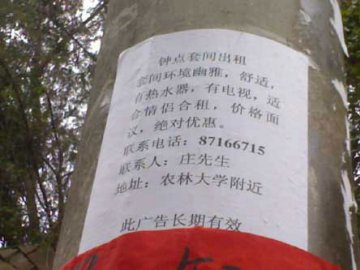 钟点套间出租
套间环境幽雅，舒适，
有热水器，有电视，适
合情侣合租，价格面
议，绝对优惠。
联系电话：87166715
联系人：庄先生
地址：农林大学附近
此广告长期有效